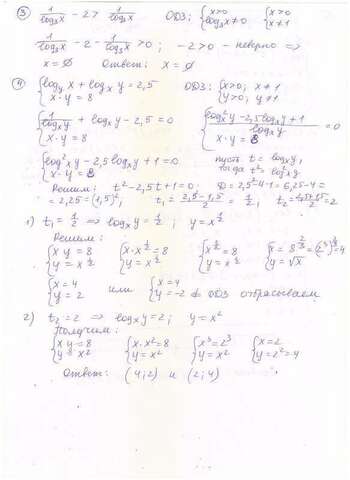 ③ 1/log₃x - 2 > 1/log₃x ОДЗ: {x>0 {x>0
log₃x≠0 x≠1
1/log₃x - 2 - 1/log₃x > 0 ; -2>0 - неверно =>
x=∅ Ответ: x=∅
④ {log_y x + log_x y = 2,5 ОДЗ: {x>0; x≠1
x·y = 8 y>0; y≠1
{1/log_x y + log_x y - 2,5 = 0 {(log²_x y - 2,5log_x y + 1)/log_x y = 0
x·y = 8 x·y = 8
{log²_x y - 2,5log_x y + 1 = 0 пусть t = log_x y,
x·y = 8 тогда t² = log²_x y
Решим: t² - 2,5t + 1 = 0. D = 2,5² - 4·1 = 6,25 - 4 =
= 2,25 = (1,5)², t₁ = (2,5-1,5)/2 = 1/2, t₂ = (2,5+1,5)/2 = 2
1) t₁ = 1/2 => log_x y = 1/2 ; y = x^(1/2)
Решим:
{xy = 8 {x·x^(1/2) = 8 {x^(3/2) = 8 {x = 8^(2/3) = (2³)^(2/3) = 4
y = x^(1/2) y = x^(1/2) y = x^(1/2) y = √x
{x = 4 или {x = 4
y = 2 y = -2 ∉ ОДЗ отбрасываем
2) t₂ = 2 => log_x y = 2; y = x²
Получим:
{xy = 8 {x·x² = 8 {x³ = 2³ {x = 2
y = x² y = x² y = x² y = 2² = 4
Ответ: (4;2) и (2;4)